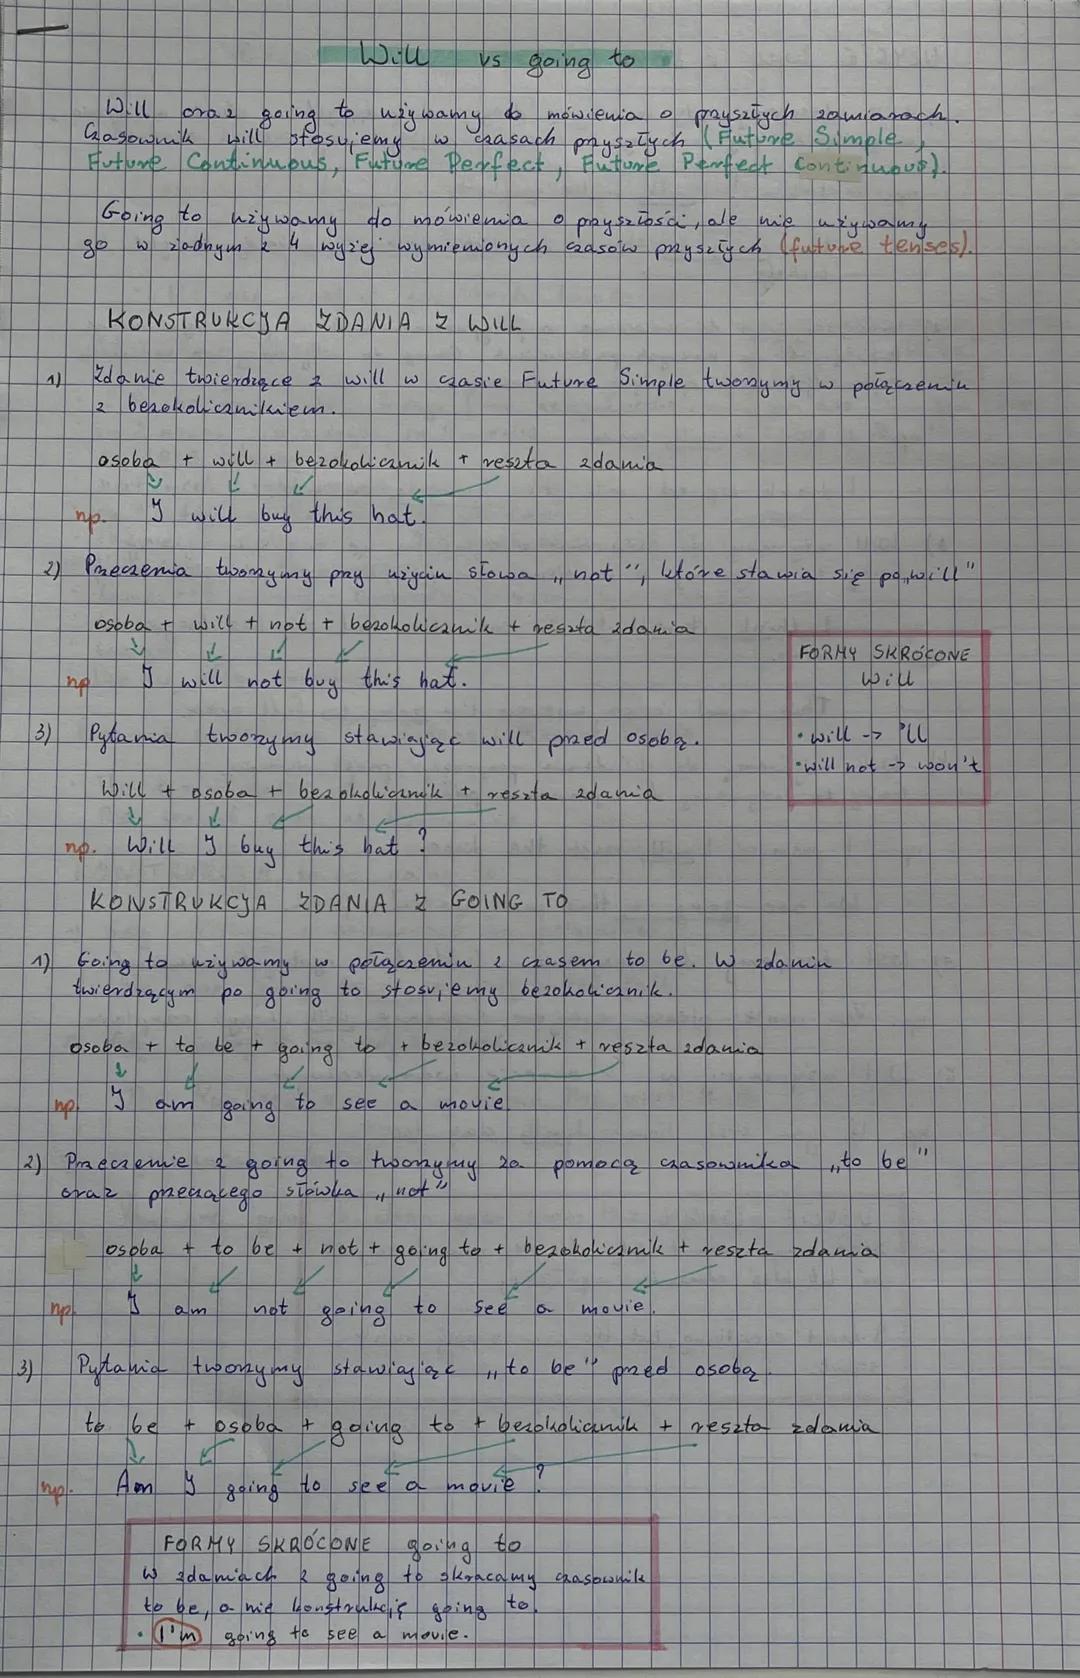 Will vs going to
Will oraz going to używamy do mówienia o przyszłych zamiarach.
Czasownik will stosujemy w czasach przyszłych (Future Simple,
Future Continuous, Future Perfect, Future Perfect Continuous).
Going to używamy do mówienia o przyszłości, ale nie używamy
go w żadnym z 4 wyżej wymienionych czasów przyszłych (future tenses).
KONSTRUKCJA ZDANIA Z WILL
1) Zdanie twierdzące z will w czasie Future Simple tworzymy w połączeniu
z bezokolicznikiem.
osoba + will + bezokolicznik + reszta zdania
np. I will buy this hat.
2) Przeczenia tworzymy przy użyciu słowa „not", które stawia się po „will"
osoba + will + not + bezokolicznik + reszta zdania
np I will not buy this hat.
FORMY SKRÓCONE
Will
• will -> 'll
• will not -> won't
3) Pytania tworzymy stawiając will przed osobą.
Will + osoba + bezokolicznik + reszta zdania
np. Will I buy this hat ?
KONSTRUKCJA ZDANIA Z GOING TO
1) Going to używamy w połączeniu z czasem to be. W zdaniu
twierdzącym po going to stosujemy bezokolicznik.
osoba + to be + going to + bezokolicznik + reszta zdania
np. I am going to see a movie.
2) Przeczenie z going to tworzymy za pomocą czasownika „to be"
oraz przeczącego słówka „not"
osoba + to be + not + going to + bezokolicznik + reszta zdania
np. I am not going to see a movie.
3) Pytania tworzymy stawiając „to be" przed osobą.
to be + osoba + going to + bezokolicznik + reszta zdania
np. Am I going to see a movie ?
FORMY SKRÓCONE going to
W zdaniach z going to skracamy czasownik
to be, a nie konstrukcję going to.
• I'm going to see a movie.